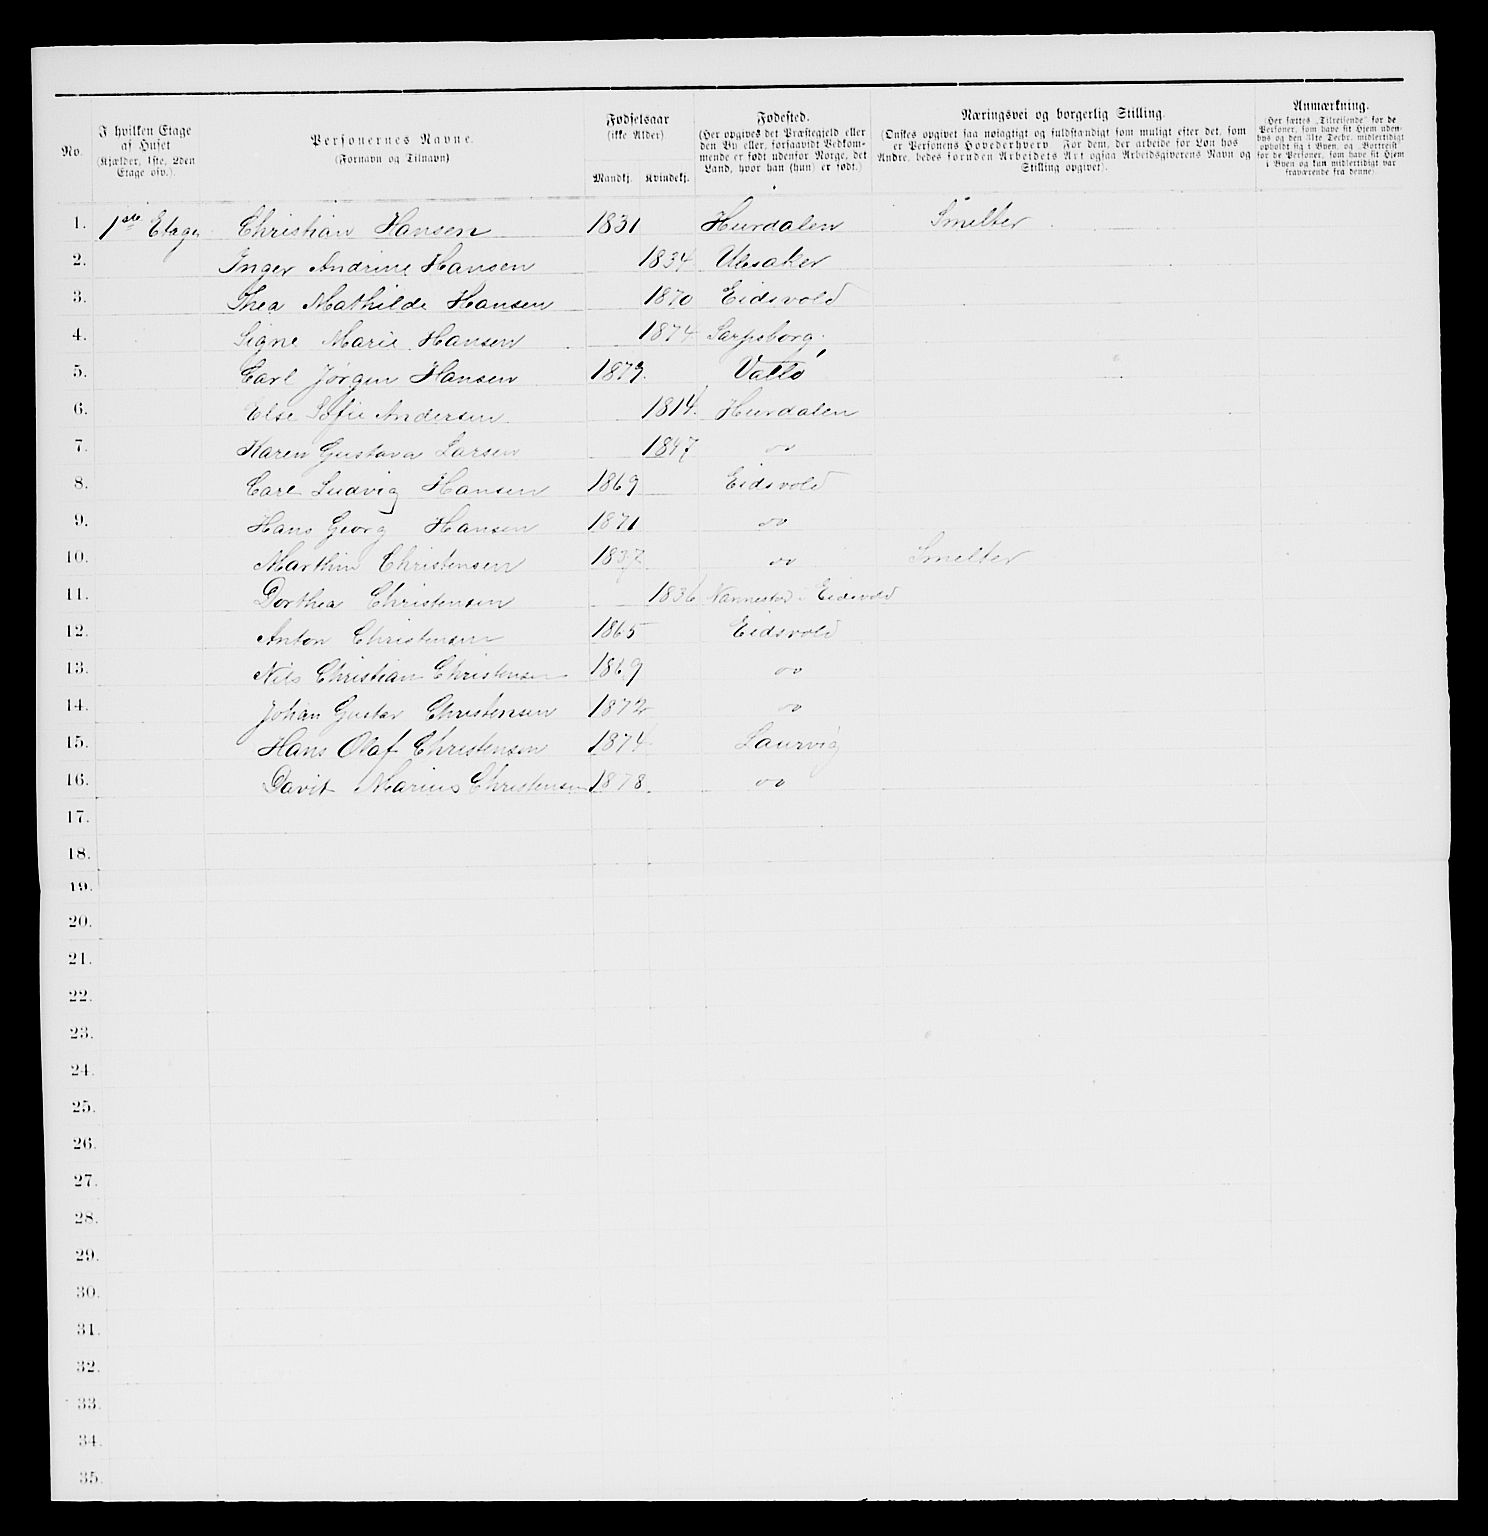 No.
I hvilken Etage
af Huset
(Kjælder, 1ste, 2den
Etage osv.).
Personernes Navne.
(Fornavn og Tilnavn)
Fødselsaar
(ikke Alder).
Mandkj. Kvindekj.
Fødested.
(Her opgives det Præstegjeld eller
den By eller, forsaavidt Vedkom-
mende er født udenfor Norge, det
Land, hvor han (hun) er født.)
Næringsvei og borgerlig Stilling.
(Ønskes opgivet saa nøiagtigt og fuldstændigt som muligt efter det, som
er Personens Hovederhverv For dem, der arbeide for Løn hos
Andre, bedes foruden Arbeidets Art ogsaa Arbeidsgiverens Navn og
Stilling opgivet).
Anmærkning.
(Her sættes „Tilreisende" for de
Personer, som have sit Hjem uden-
bys og den 31te Decbr. midlertidigt
opholdt sig i Byen, og „Bortreist"
for de Personer, som have sit Hjem
i Byen og kun midlertidigt var
fraværende fra denne)
1. 1ste Etage Christian Hansen 1831 Hurdalen Smelter
2. Inger Andrine Hansen 1834 Ulesaker
3. Thea Mathilde Hansen 1870 Eidsvold
4. Signe Marie Hansen 1874 Sarpsborg.
5. Carl Jørgen Hansen 1879. Vallø
6. Else Sofie Andersen 1814. Hurdalen
7. Karen Gustava Larsen 1847 oo
8. Carl Ludvig Hansen 1869 Eidsvold
9. Hans Georg Hansen 1871 oo
10. Marthin Christensen 1837 oo Smelter
11. Dorthea Christensen 1836 Nannestad i Eidsvold
12. Anton Christensen 1865 Eidsvold
13. Nils Christian Christensen 1869 oo
14. Johan Gustav Christensen 1872 oo
15. Hans Olaf Christensen 1874 Laurvig
16. Davit Marius Christensen 1878. oo
17.
18.
19.
20.
21.
22.
23.
24.
25.
26.
27.
28.
29.
30.
31.
32.
33.
34.
35.